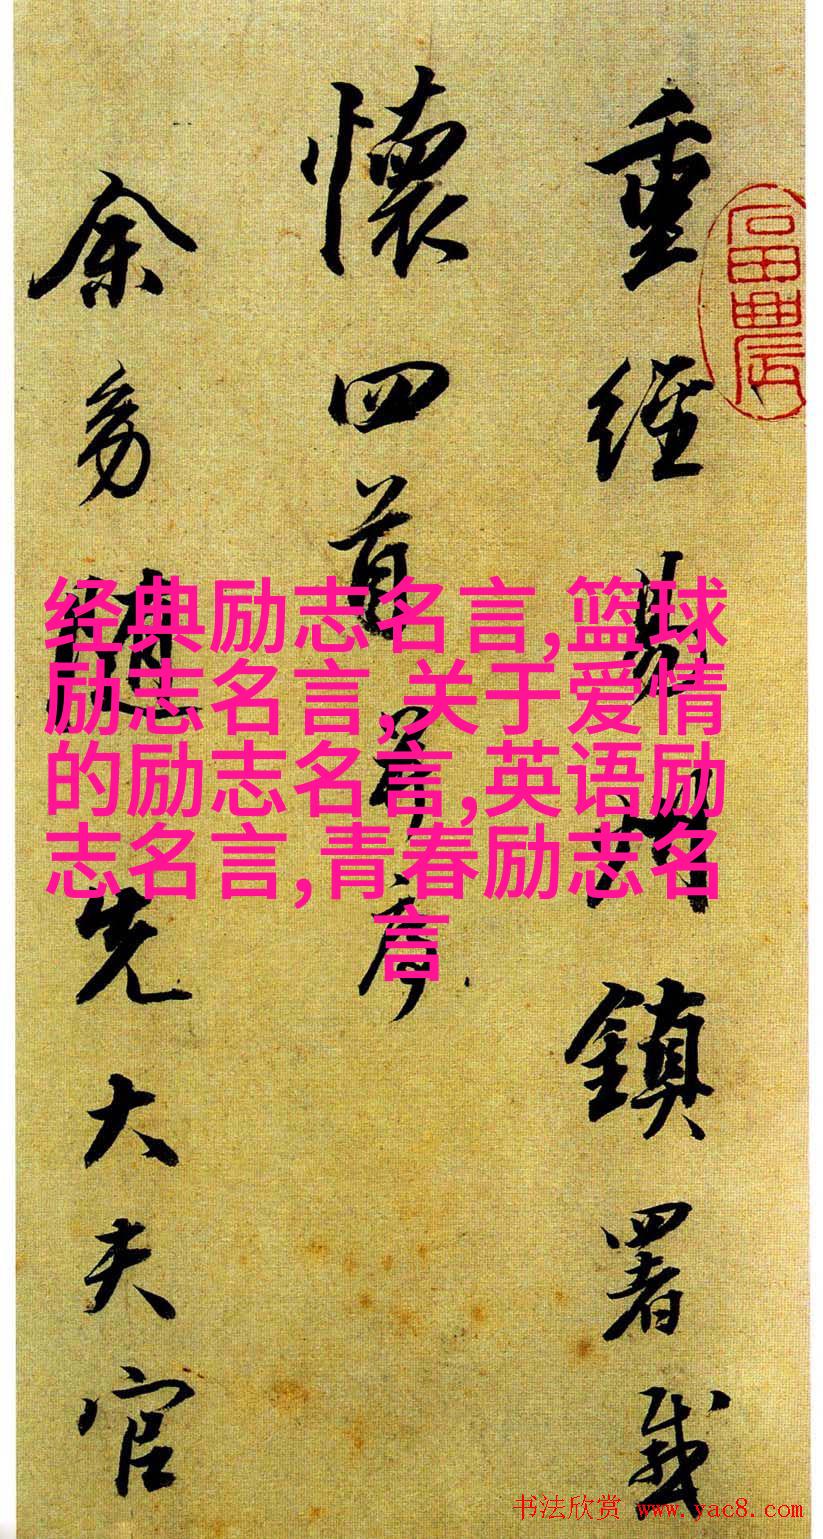 重經鎮署感
懷四首序
余幼隨先大夫官
经典励志名言,篮球
励志名言,关于爱情
的励志名言,英语励
志名言,青春励志名
言
书法欣赏 www.yac8.com